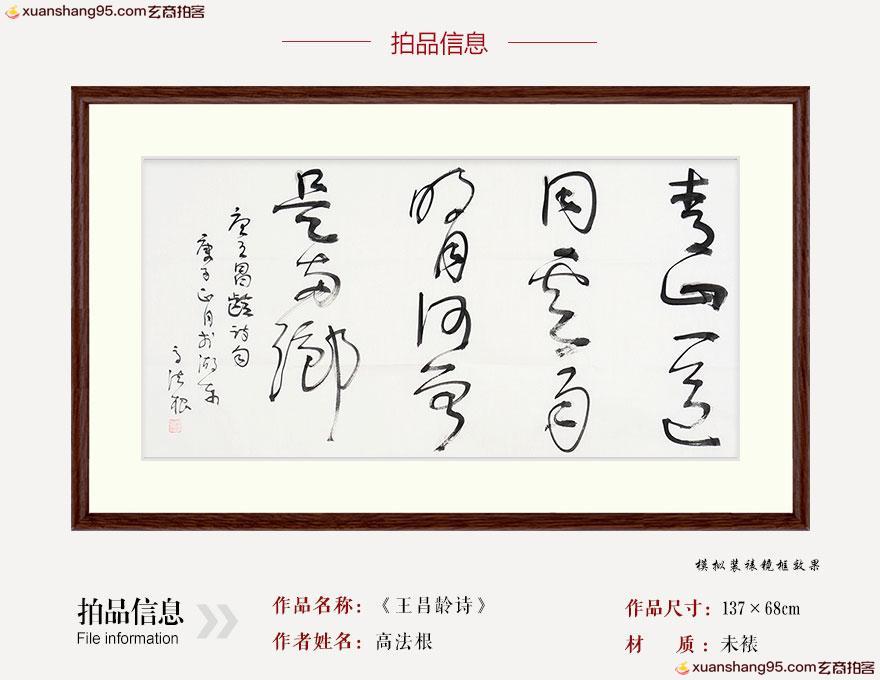 xuanshang95.com玄商拍客
拍品信息
青山一道
同雲雨
明月何曾
是兩鄉
唐王昌齡詩句
庚子正月於湖東
高法根
模拟装裱镜框效果
拍品信息
File information
作品名称：《王昌龄诗》
作者姓名：高法根
作品尺寸：137×68cm
材 质：未裱
xuanshang95.com玄商拍客